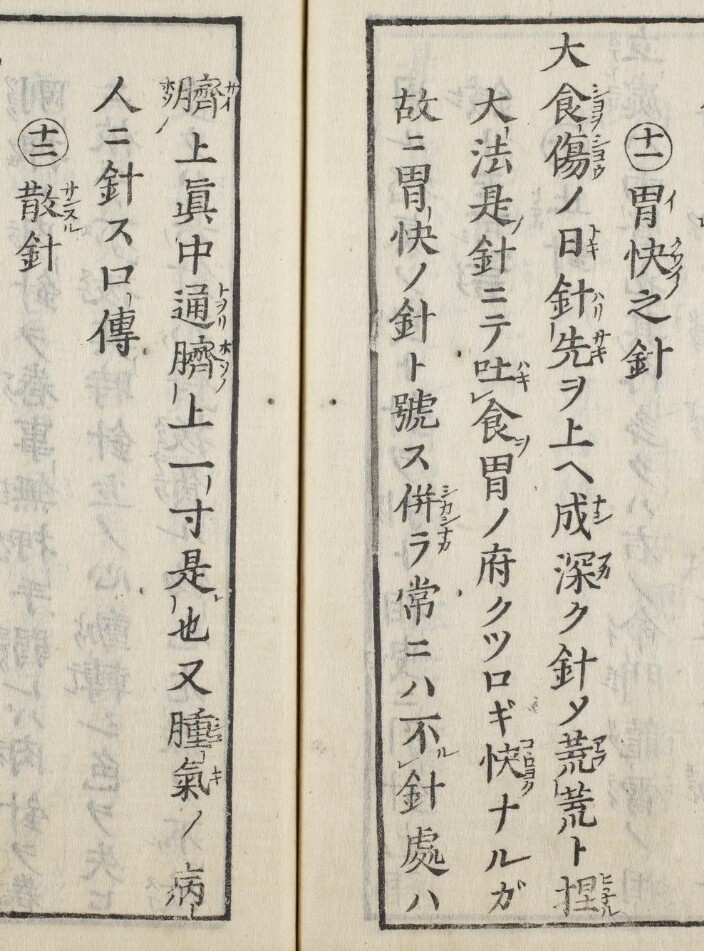 ㊉一 胃快之針
大食傷ノ日針先ヲ上ヘ成深ク針メ荒荒ト捏
大法是針ニテ吐食胃ノ府クツロギ快ナルガ
故ニ胃快ノ針ト號ス併ラ常ニハ不針處ハ
臍上眞中通臍上一寸是也又腫氣ノ病
人ニ針ス口傳
十二 散針